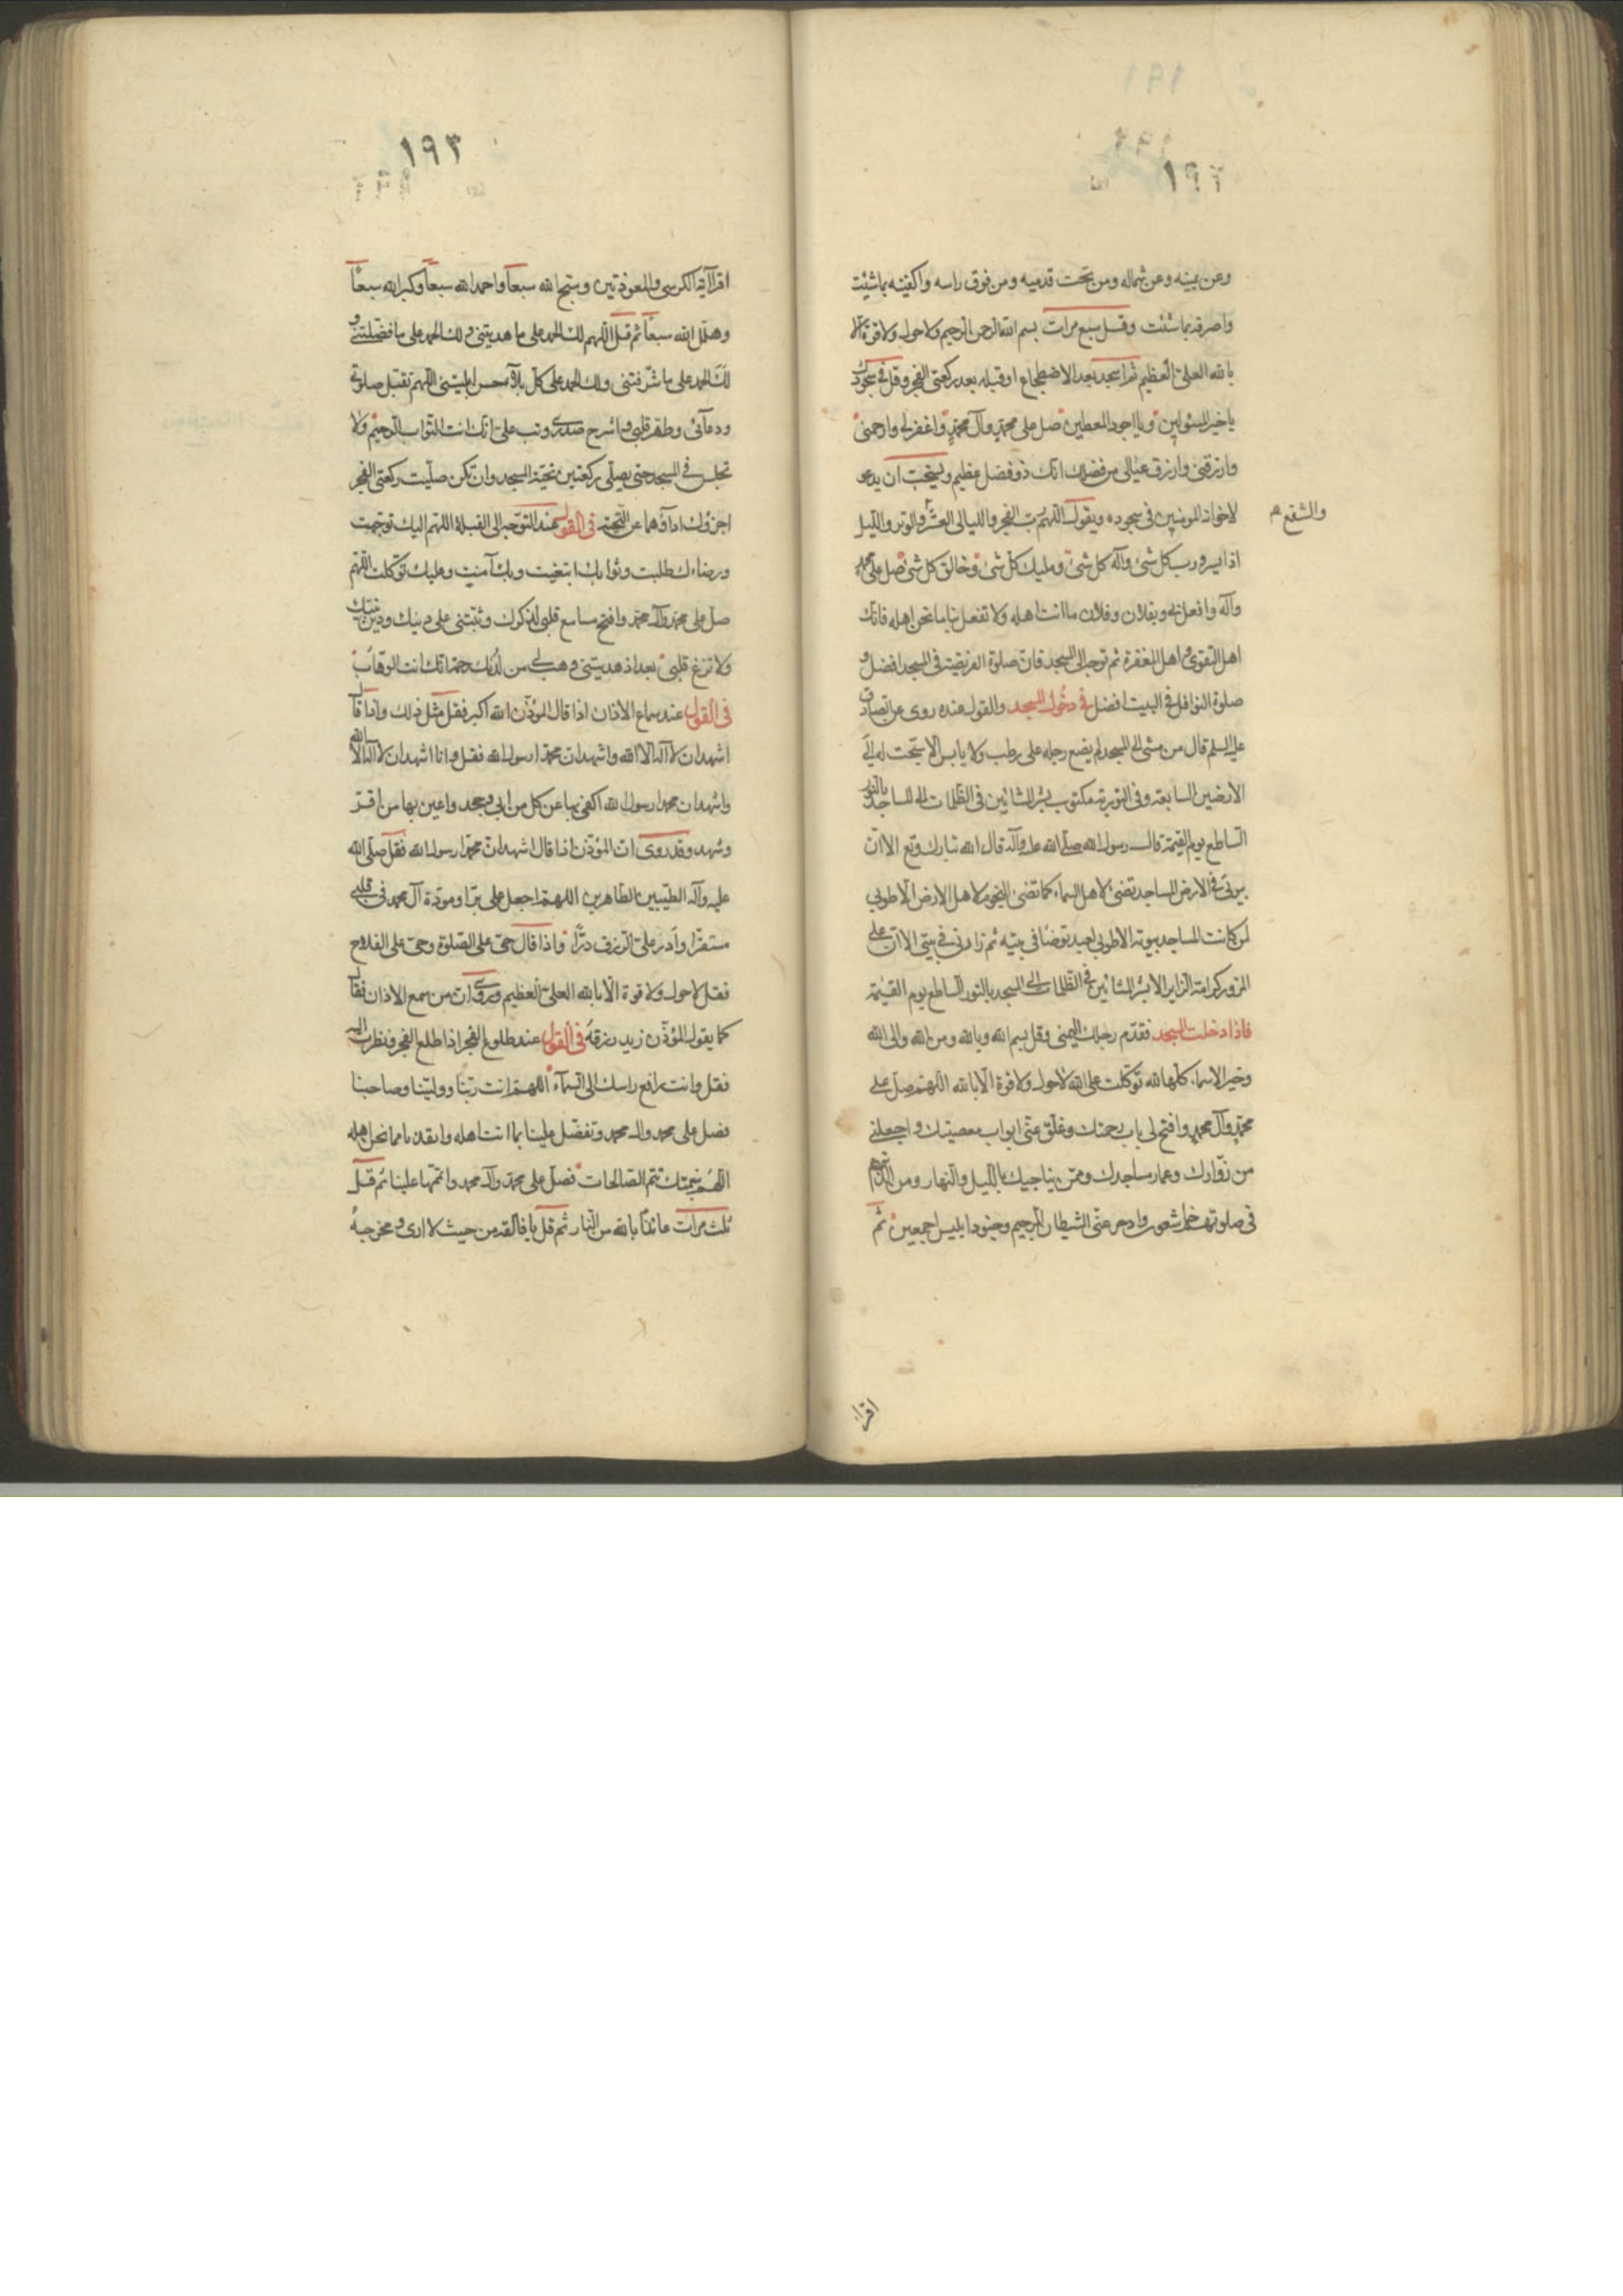 ١٩٢
وعن يمينه وعن شماله ومن تحت قدميه ومن فوق راسه واكفنيه بما شئت
واصرفه بما شئت وقل سبع مرات بسم الله الرحمن الرحيم ولا حول ولا قوة الا
بالله العلى العظيم ثم اسجد بعد الاضطجاع او قبله بعد ركعتى الفجر وقل فى سجودك
يا خير المسئولين ويا اجود المعطين صل على محمد وآل محمد واغفر لى وارحمنى
وارزقنى وارزق عيالى من فضلك انك ذو فضل عظيم ويستحب ان يدعو
لاخوانه المومنين فى سجوده ويقول اللهم رب الفجر والليالى العشر والوتر والليل
والشفع
اذا يسر ورب كل شئ واله كل شئ ومليك كل شئ وخالق كل شئ صل على محمد
وآله وافعل بى وبفلان وفلان ما انت اهله ولا تفعل بنا ما نحن اهله فانك
اهل التقوى واهل المغفرة ثم توجه الى المسجد فان صلوة الفريضة فى المسجد افضل و
صلوة النوافل فى البيت افضل فى دخول المسجد والقول عنده روى عن الصادق
عليه السلم قال من مشى الى المسجد لم يضع رجله على رطب ولا يابس الا سبحت له الى
الارضين السابعة وفى التورية مكتوب بشر المشائين فى الظلمات الى المساجد بالنور
الساطع يوم القيمة قال رسول الله صلى الله عليه وآله قال الله تبارك وتع الا ان
بيوتى فى الارض المساجد تضئ لاهل السماء كما تضئ النجوم لاهل الارض الا طوبى
لمن كانت المساجد بيوته الا طوبى لعبد توضا فى بيته ثم زارنى فى بيتى الا ان على
المزور كرامة الزاير الا بشر المشائين فى الظلمات الى المسجد بالنور الساطع يوم القيمة
فاذا دخلت المسجد فقدم رجلك اليمنى وقل بسم الله وبالله ومن الله والى الله
وخير الاسماء كلها لله توكلت على الله لا حول ولا قوة الا بالله اللهم صل على
محمد وآل محمد وافتح لى باب رحمتك وغلق عنى ابواب معصيتك واجعلنى
من زوارك وعمار مساجدك وممن يناجيك بالليل والنهار ومن الذين هم
فى صلوتهم خاشعون وادحر عنى الشيطان الرجيم وجنود ابليس اجمعين ثم
اقرا
١٩٣
اقرا آية الكرسى والمعوذتين وسبح الله سبعا واحمد الله سبعا وكبر الله سبعا
وهلل الله سبعا ثم قل اللهم لك الحمد على ما هديتنى ولك الحمد على ما فضلتنى و
لك الحمد على ما شرفتنى ولك الحمد على كل بلاء حسن ابليتنى اللهم تقبل صلوتى
ودعائى وطهر قلبى واشرح صدرى وتب على انك انت التواب الرحيم ولا
تجلس فى المسجد حتى يصلى ركعتين تحية المسجد وان تكن صليت ركعتى الفجر
اجزؤك اداؤهما عن التحية فى القول عند التوجه الى القبلة اللهم اليك توجهت
ورضاءك طلبت وثوابك ابتغيت وبك آمنت وعليك توكلت اللهم
صل على محمد وآل محمد وافتح مسامع قلبى لذكرك وثبتنى على دينك ودين نبيك
ولا تزغ قلبى بعد اذ هديتنى وهب لى من لدنك رحمة انك انت الوهاب
فى القول عند سماع الاذان اذا قال المؤذن الله اكبر فقل مثل ذلك واذا قال
اشهد ان لا اله الا الله واشهد ان محمدا رسول الله فقل وانا اشهد ان لا اله الا الله
واشهد ان محمدا رسول الله اكفى بها عن كل من ابى وجحد واعين بها من اقر
وشهد وقد روى ان المؤذن اذا قال اشهد ان محمدا رسول الله فقل صلى الله
عليه وآله الطيبين الطاهرين اللهم اجعل عملى برا ومودة آل محمد فى قلبى
مستقرا وادر على الرزق درا واذا قال حى على الصلوة وحى على الفلاح
فقل لا حول ولا قوة الا بالله العلى العظيم وروى ان من سمع الاذان فقال
كما يقول المؤذن زيد رزقه فى القول عند طلوع الفجر اذا طلع الفجر ونظرت اليه
فقل وانت رافع راسك الى السماء اللهم انت ربنا وولينا وصاحبنا
فصل على محمد وال محمد وتفضل علينا بما انت اهله مما نحن اهله
اللهم بنعمتك تتم الصالحات فصل على محمد وآل محمد واتمها علينا ثم قل
ثلث مرات عائذا بالله من النار ثم قل يا فالقه من حيث لا ارى ومخرجه